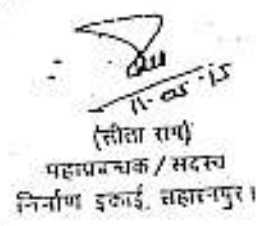 11-05-15
(सीता राम)
महाप्रबन्धक / सदस्य
निर्माण इकाई, सहारनपुर।